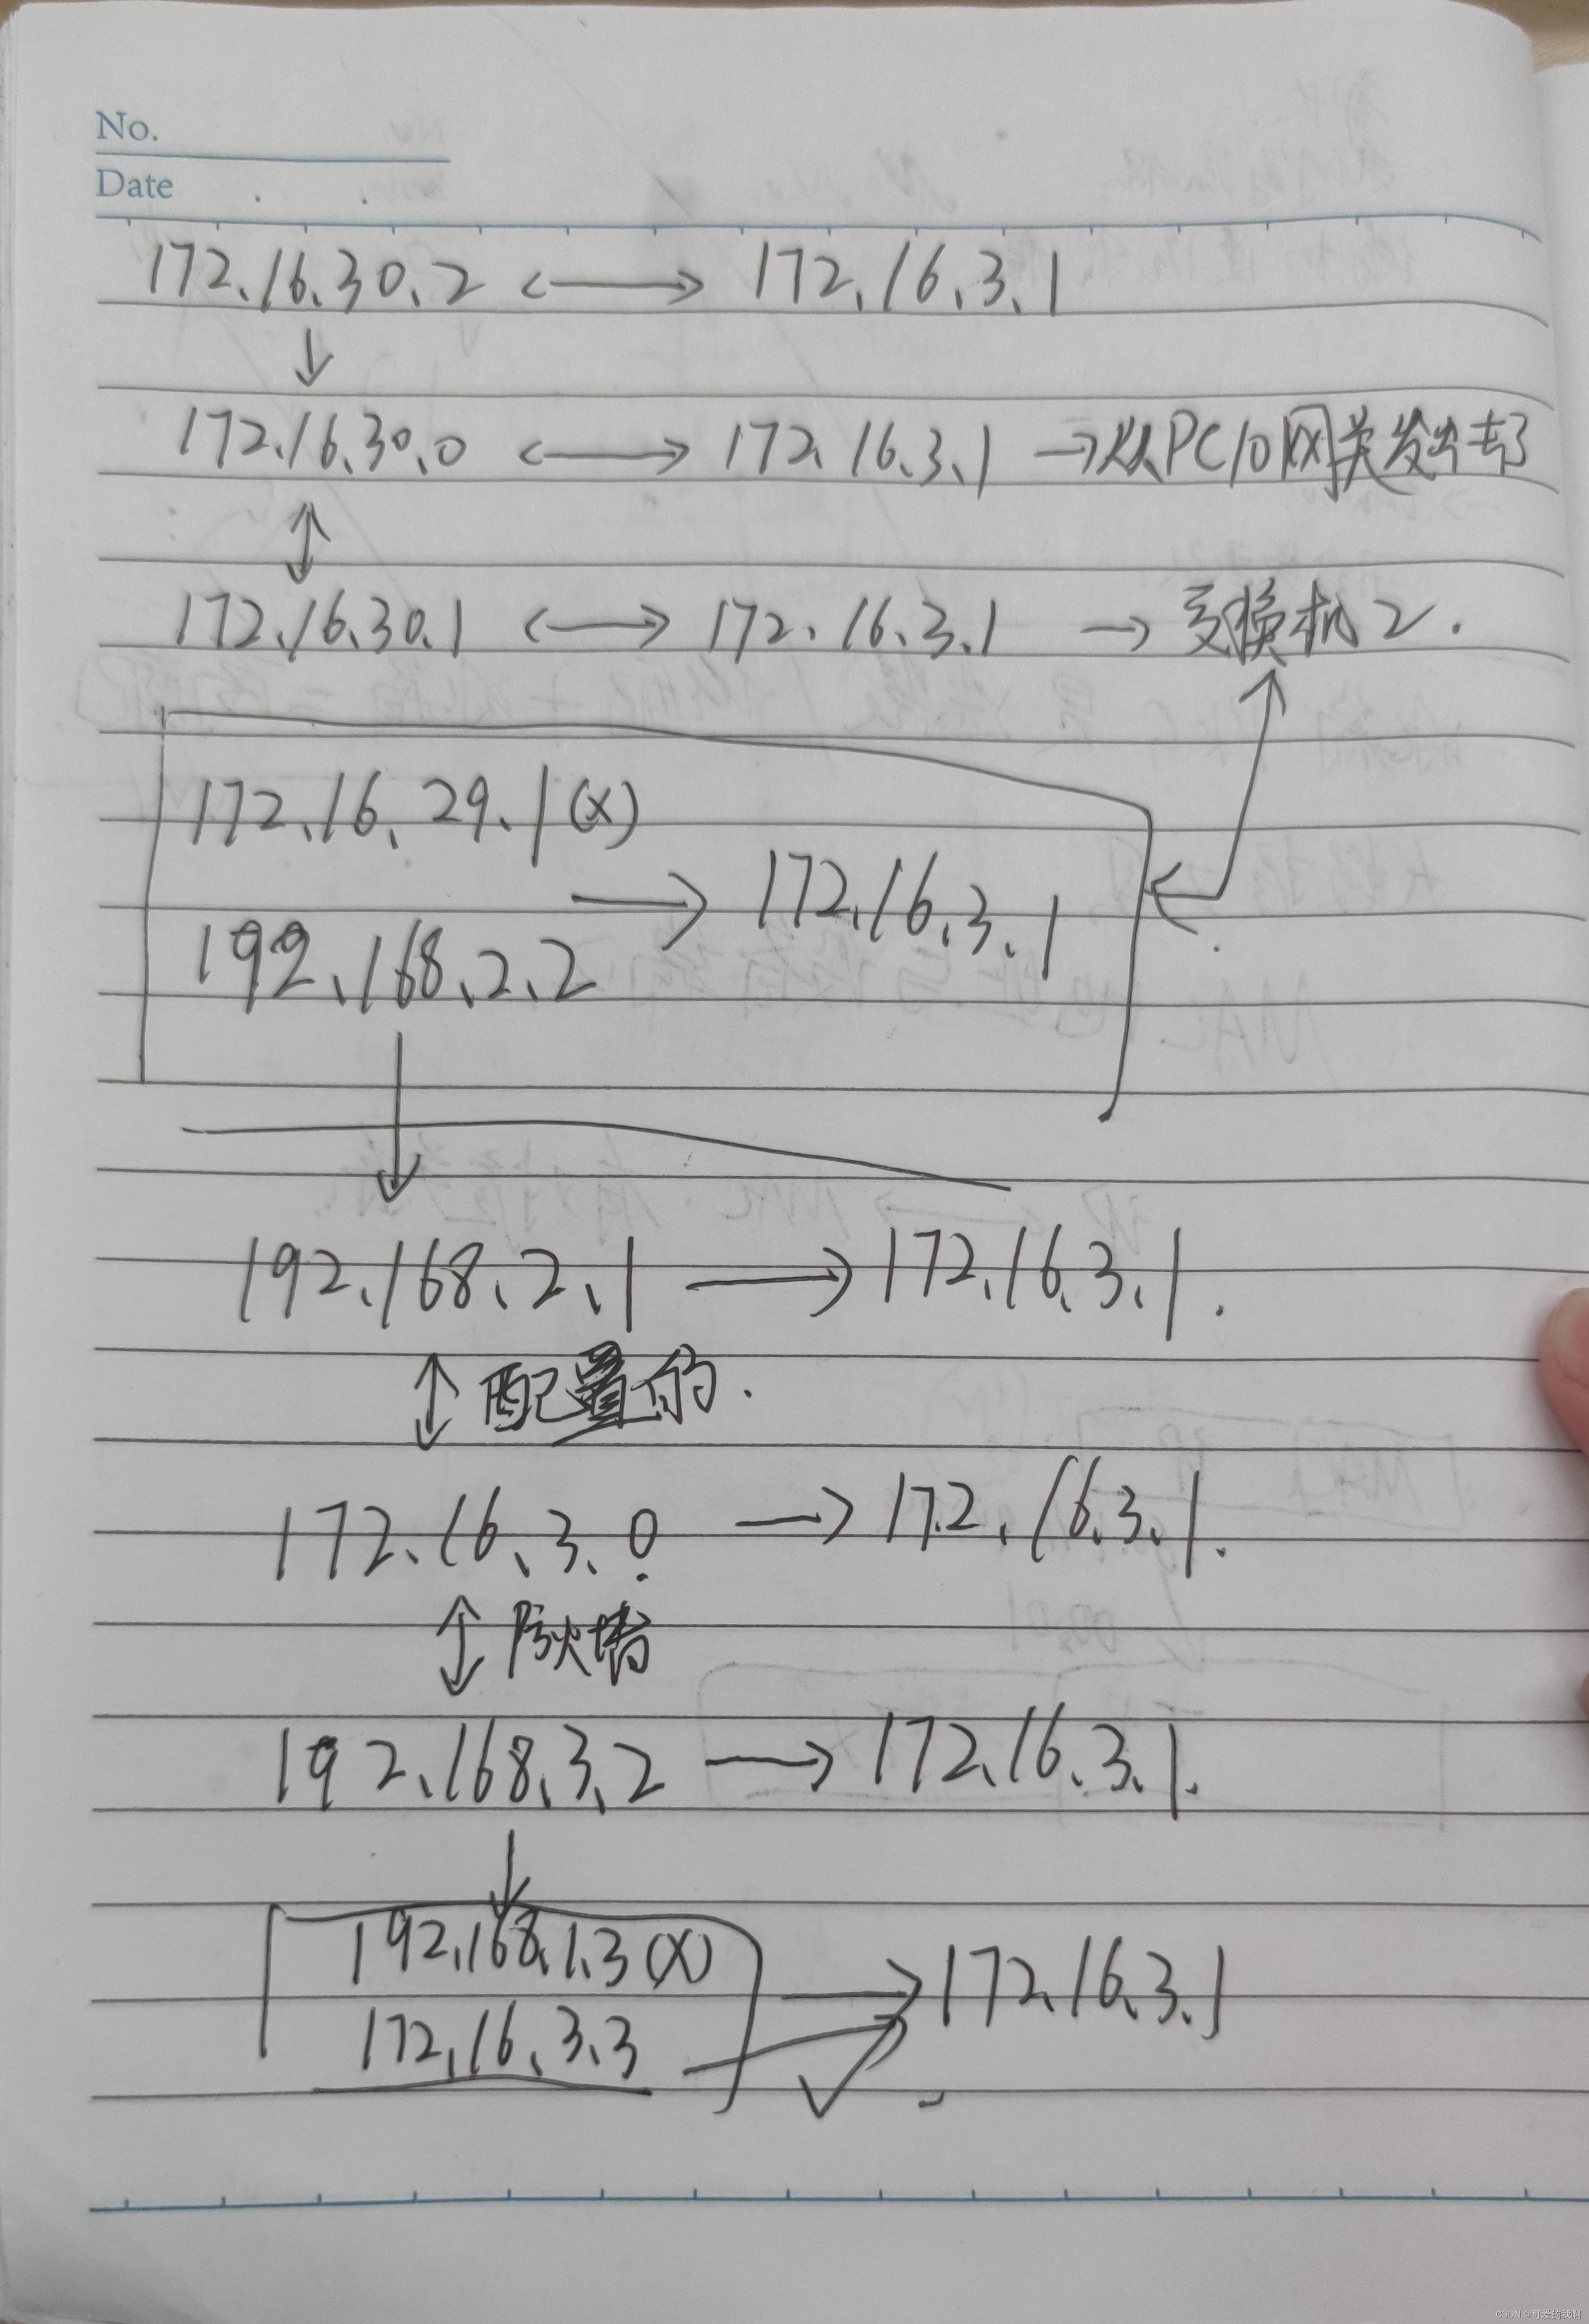 No.
Date
172.16.30.2 <—> 172.16.3.1
↓
172.16.30.0 <—> 172.16.3.1 →从PC10网关发出去了
↕
172.16.30.1 <—> 172.16.3.1 → 交换机2.
172.16.29.1(x)
→ 172.16.3.1
192.168.2.2
↓
192.168.2.1 → 172.16.3.1.
↕ 配置的.
172.16.3.0 → 172.16.3.1.
↕ 防火墙
192.168.3.2 → 172.16.3.1.
↓
192.168.1.3(x)
→ 172.16.3.1
172.16.3.3
CSDN @可爱的我啊